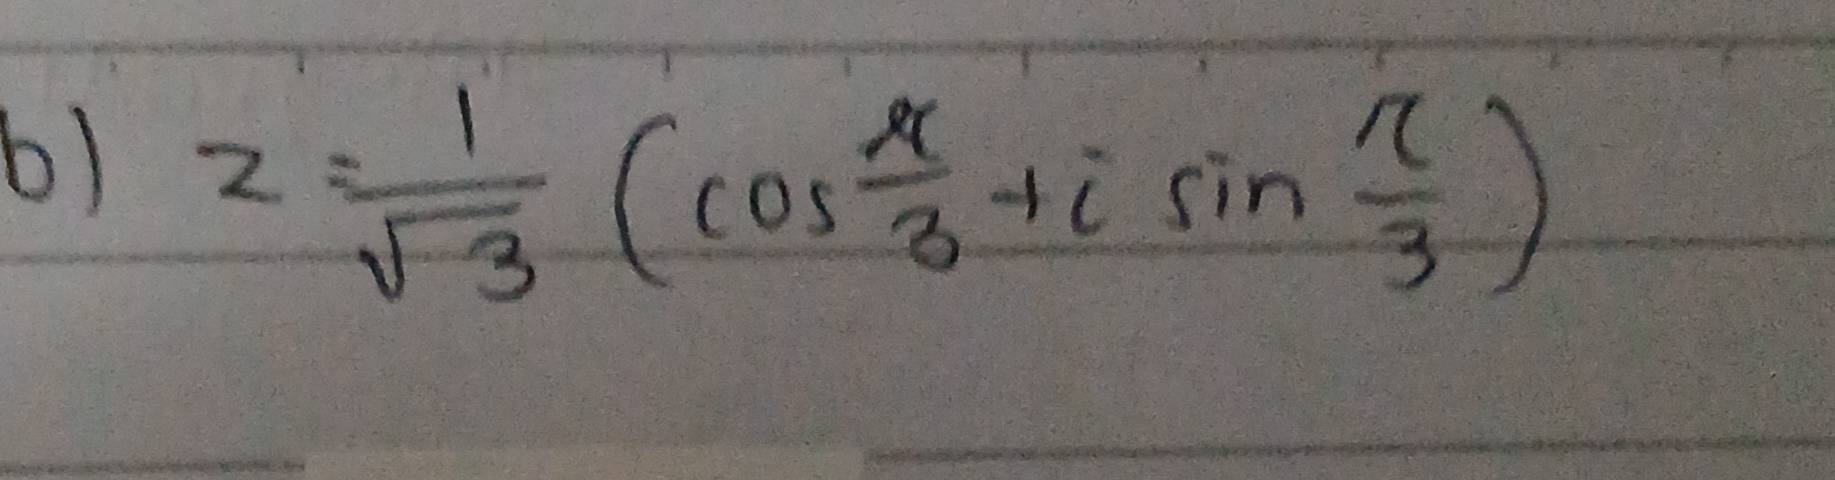 b) z = 1/√3 (cos π/3 + i sin π/3)